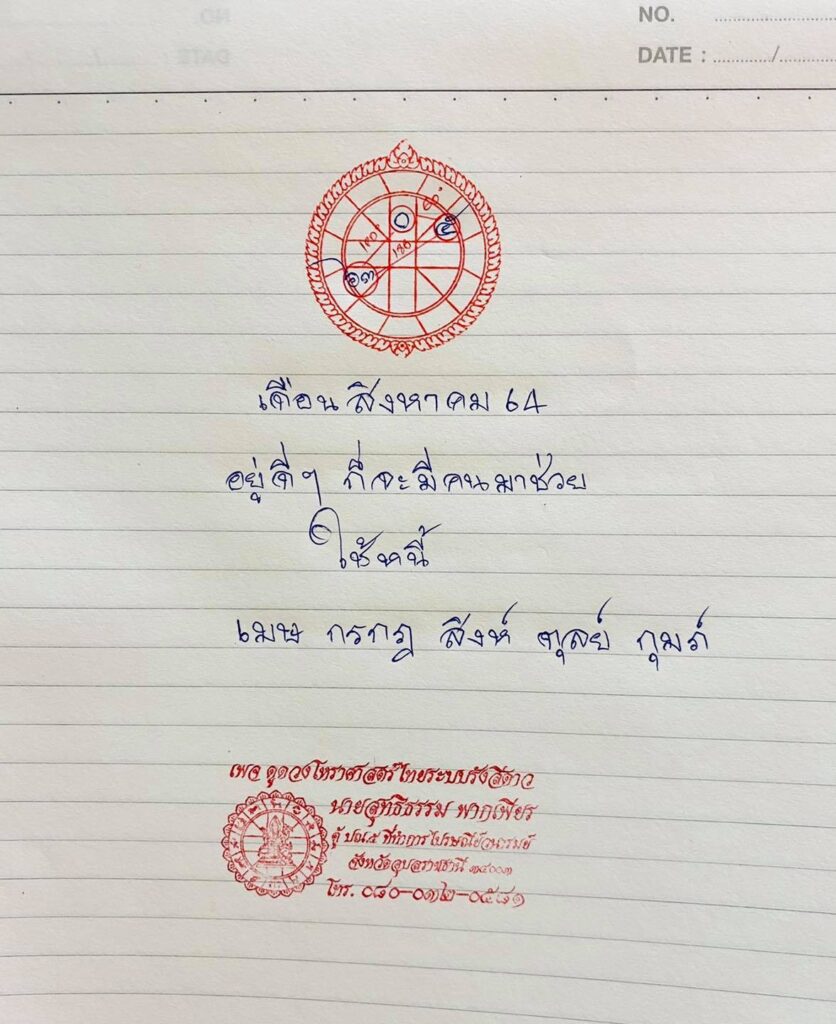 NO.
DATE :
๐
๕
๖๓
๖๐°
๑๒๐°
๑๘๐
เดือน สิงหาคม 64
อยู่ดีๆ ก็จะมีคนมาช่วย
ใช้หนี้
เมษ กรกฎ สิงห์ ตุลย์ กุมภ์
เพจ ดูดวงโหราศาสตร์ไทยระบบรังสีดาว
นายสุทธิธรรม พากเพียร
ตู้ ปณ.๕ ที่ทำการไปรษณีย์วนารมย์
จังหวัดอุบลราชธานี ๓๔๐๐๓
โทร. ๐๘๐-๐๗๒-๐๕๘๑